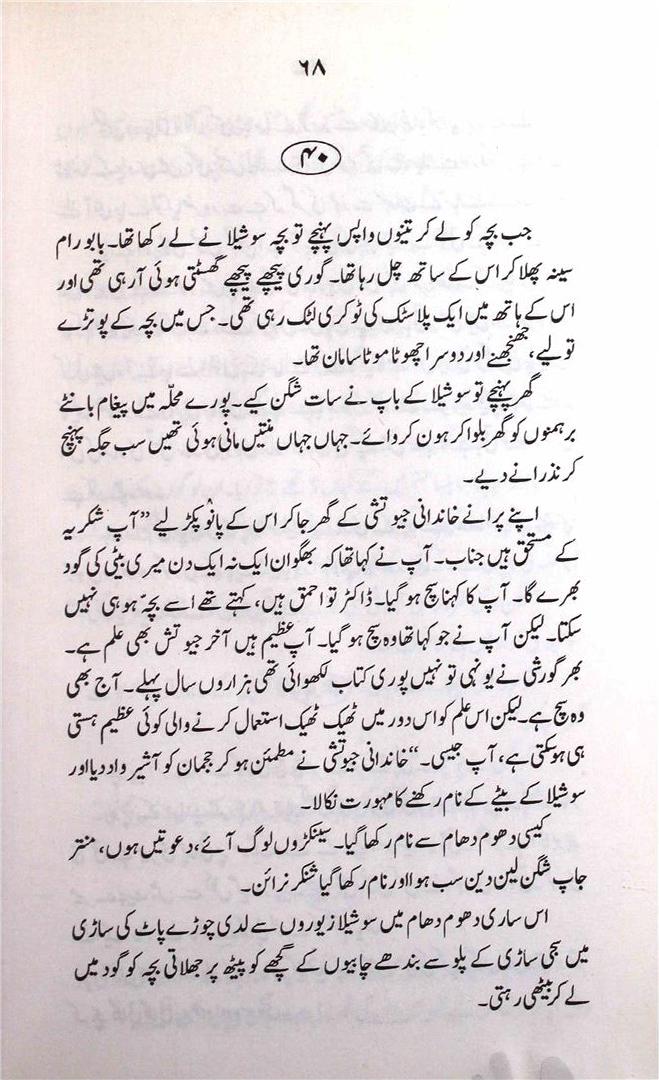 ۶۸
۴۰
جب بچہ کو لے کر تینوں واپس پہنچے تو بچہ سوشیلا نے لے رکھا تھا۔ بابو رام
سینہ پھلا کر اس کے ساتھ چل رہا تھا۔ گوری پیچھے پیچھے گھسٹتی ہوئی آرہی تھی اور
اس کے ہاتھ میں ایک پلاسٹک کی ٹوکری لٹک رہی تھی۔ جس میں بچہ کے پوتڑے
تولیے، جھنجھنے اور دوسرا چھوٹا موٹا سامان تھا۔
گھر پہنچے تو سوشیلا کے باپ نے سات شگن کیے۔ پورے محلّہ میں پیغام بانٹے
برہمنوں کو گھر بلوا کر ہون کروائے۔ جہاں جہاں منتیں مانی ہوئی تھیں سب جگہ پہنچ
کر نذرانے دیے۔
اپنے پرانے خاندانی جیوتشی کے گھر جا کر اس کے پانو پکڑ لیے ”آپ شکریہ
کے مستحق ہیں جناب۔ آپ نے کہا تھا کہ بھگوان ایک نہ ایک دن میری بیٹی کی گود
بھرے گا۔ آپ کا کہنا سچ ہو گیا۔ ڈاکٹر تو احمق ہیں، کہتے تھے اسے بچّہ ہو ہی نہیں
سکتا۔ لیکن آپ نے جو کہا تھا وہ سچ ہو گیا۔ آپ عظیم ہیں آخر جیوتش بھی علم ہے۔
بھرگورشی نے یونہی تو نہیں پوری کتاب لکھوائی تھی ہزاروں سال پہلے۔ آج بھی
وہ سچ ہے۔ لیکن اس علم کو اس دور میں ٹھیک ٹھیک استعمال کرنے والی کوئی عظیم ہستی
ہی ہو سکتی ہے، آپ جیسی۔“ خاندانی جیوتشی نے مطمئن ہو کر ججمان کو آشیر واد دیا اور
سوشیلا کے بیٹے کے نام رکھنے کا مہورت نکالا۔
کیسی دھوم دھام سے نام رکھا گیا۔ سینکڑوں لوگ آئے، دعوتیں ہوں، منتر
جاپ شگن لین دین سب ہوا اور نام رکھا گیا شنکر نرائن۔
اس ساری دھوم دھام میں سوشیلا زیوروں سے لدی چوڑے پاٹ کی ساڑی
میں سجی ساڑی کے پلو سے بندھے چابیوں کے گچھے کو پیٹھ پر جھلاتی بچہ کو گود میں
لے کر بیٹھی رہتی۔